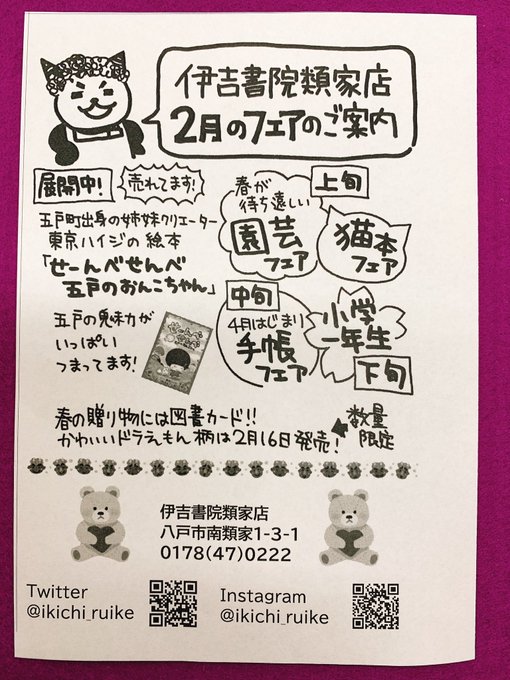 伊吉書院類家店
2月のフェアのご案内
展開中!
売れてます!
五戸町出身の姉妹クリエーター
東京ハイジの絵本
「せーんべせんべ
五戸のおんこちゃん」
五戸の魅力が
いっぱい
つまってます!
春が
待ち遠しい
園芸
フェア
上旬
猫本
フェア
中旬
4月はじまり
手帳
フェア
小学
一年生
下旬
春の贈り物には図書カード!!
かわいいドラえもん柄は2月16日発売!
数量
限定
伊吉書院類家店
八戸市南類家1-3-1
0178(47)0222
Twitter
@ikichi_ruike
Instagram
@ikichi_ruike